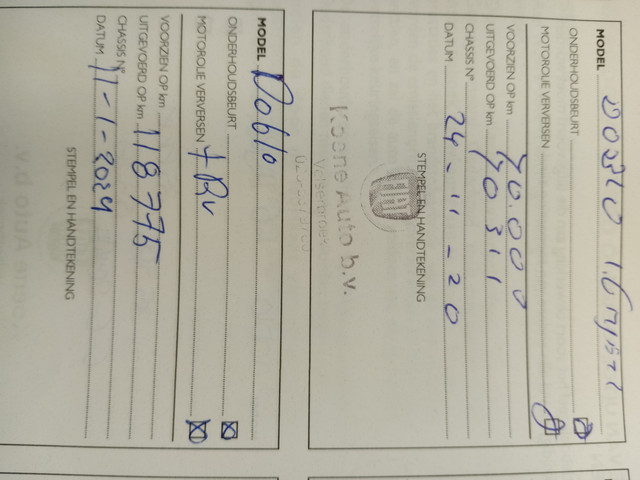 MODEL DOBLO 1.6 Mjet
ONDERHOUDSBEURT
MOTOROLIE VERVERSEN
VOORZIEN OP km 40.000
UITGEVOERD OP km 40311
CHASSIS N°
DATUM 24-11-20
STEMPEL EN HANDTEKENING
FIAT
Koene Auto b.v.
Velserbroek
MODEL Doblo
ONDERHOUDSBEURT
MOTOROLIE VERVERSEN
VOORZIEN OP km
UITGEVOERD OP km 118775
CHASSIS N°
DATUM 11-1-2024
STEMPEL EN HANDTEKENING